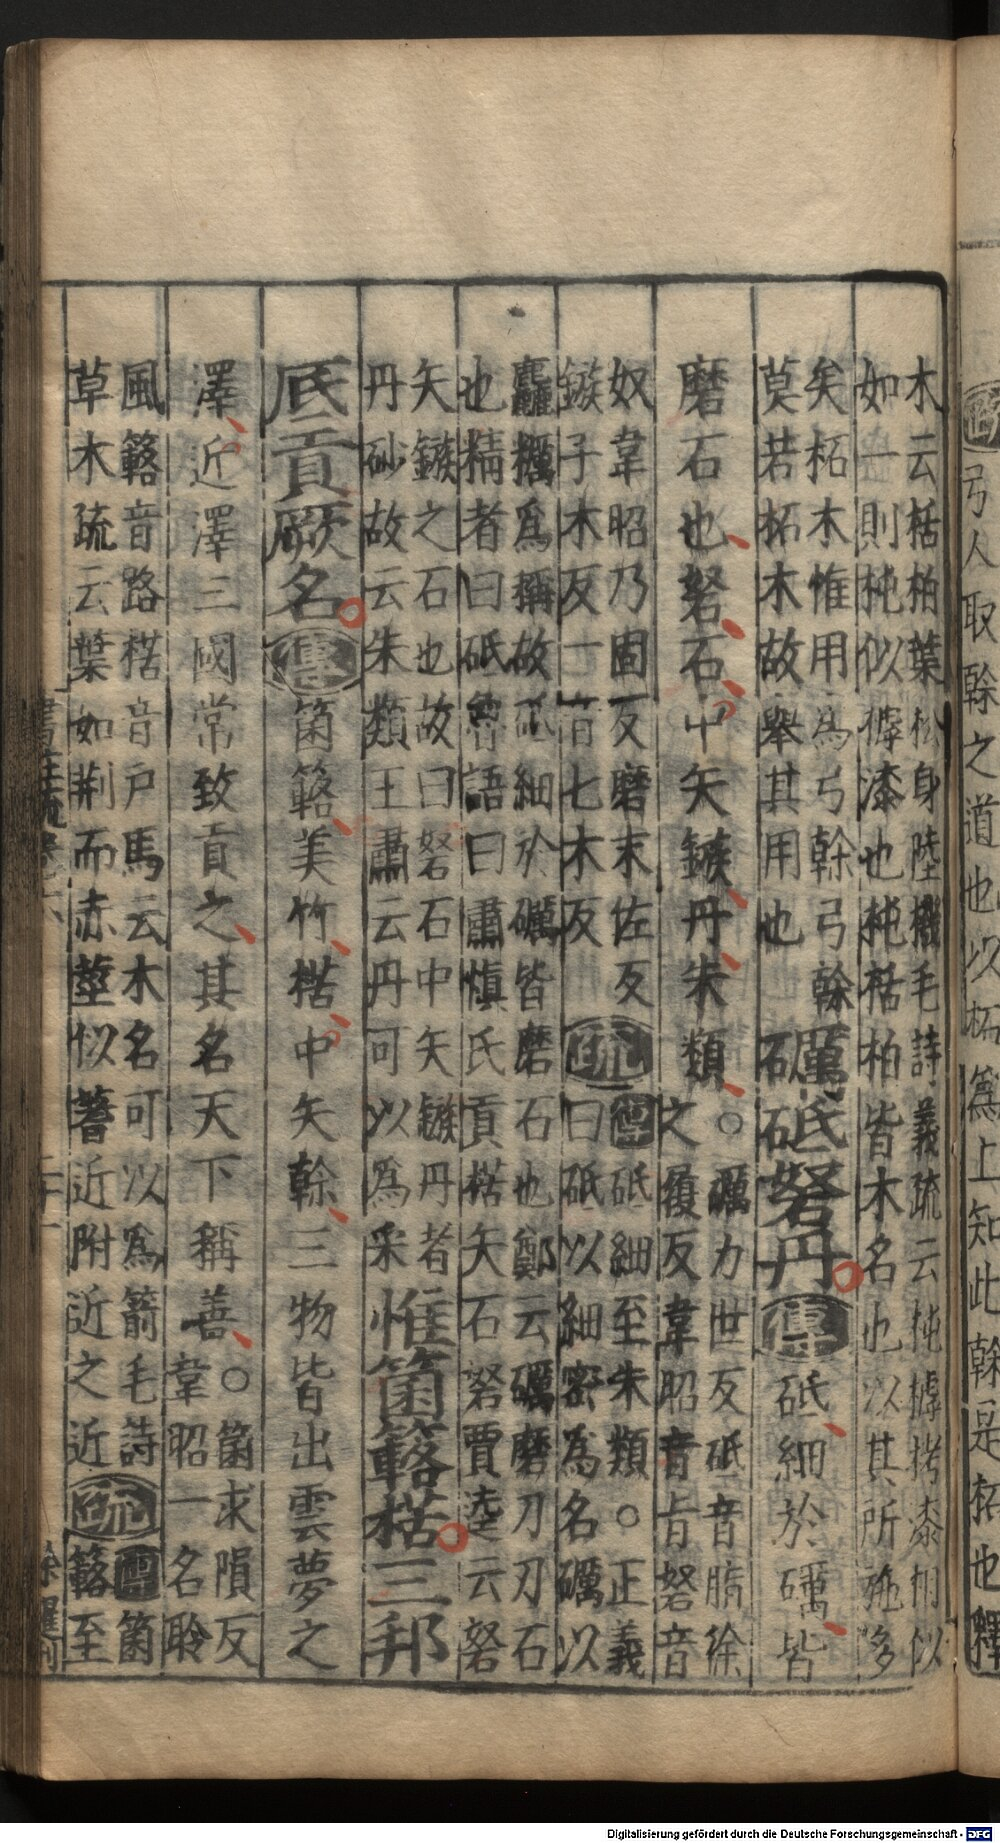 弓人取榦之道也以柘爲上知此榦是柘也釋
木云栝柏葉松身陸機毛詩義疏云杶樗栲漆相似
如一則杶似樗漆也杶栝柏皆木名也以其所施多
矣柘木惟用爲弓榦弓榦
莫若柘木故舉其用也
礪砥砮丹傳砥細於礪皆
磨石也砮石中矢鏃丹朱類○
礪力世反砥音脂徐
之履反韋昭音旨砮音
奴韋昭乃固反磨末佐反
鏃子木反一音七木反
疏
傳砥細至朱類○正義
曰砥以細密爲名礪以
麤糲爲稱故砥細於礪皆磨石也鄭云礪磨刀刃石
也精者曰砥魯語曰肅慎氏貢楛矢石砮賈逵云砮
矢鏃之石也故曰砮石中矢鏃丹者
丹砂故云朱類王肅云丹可以爲采
惟箘簵楛三邦
厎貢厥名傳箘簵美竹楛中矢榦三物皆出雲夢之
澤近澤三國常致貢之其名天下稱善○
箘求隕反
韋昭一名聆
風簵音路楛音戶馬云木名可以爲箭毛詩
草木疏云葉如荆而赤莖似蓍近附近之近
疏
傳箘
簵至
書注疏卷六
二十一
Digitalisierung gefördert durch die Deutsche Forschungsgemeinschaft - DFG